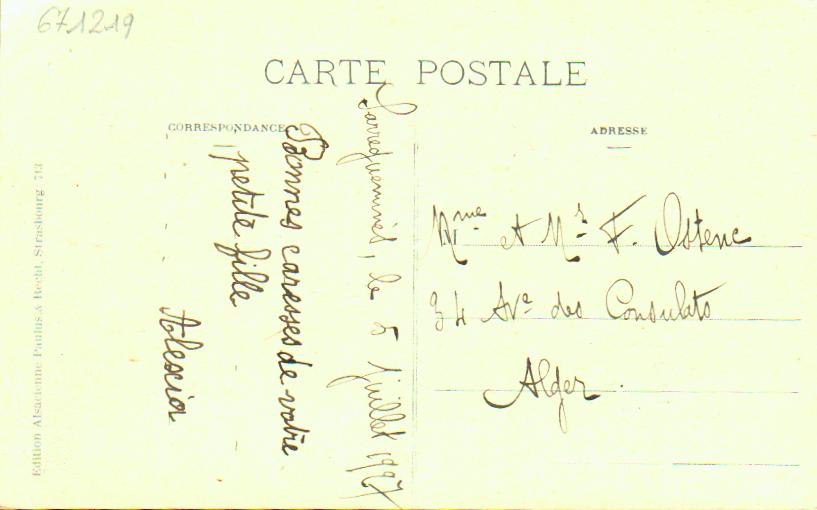 671219
CARTE POSTALE
CORRESPONDANCE
ADRESSE
Sarreguemines, le 5 juillet 1927
Bonnes caresses de votre
petite fille
Alexia
Mme et Mr F. Ostenc
34 Ave des Consulats
Alger.
Edition Alsacienne Paulus & Recht, Strasbourg 713